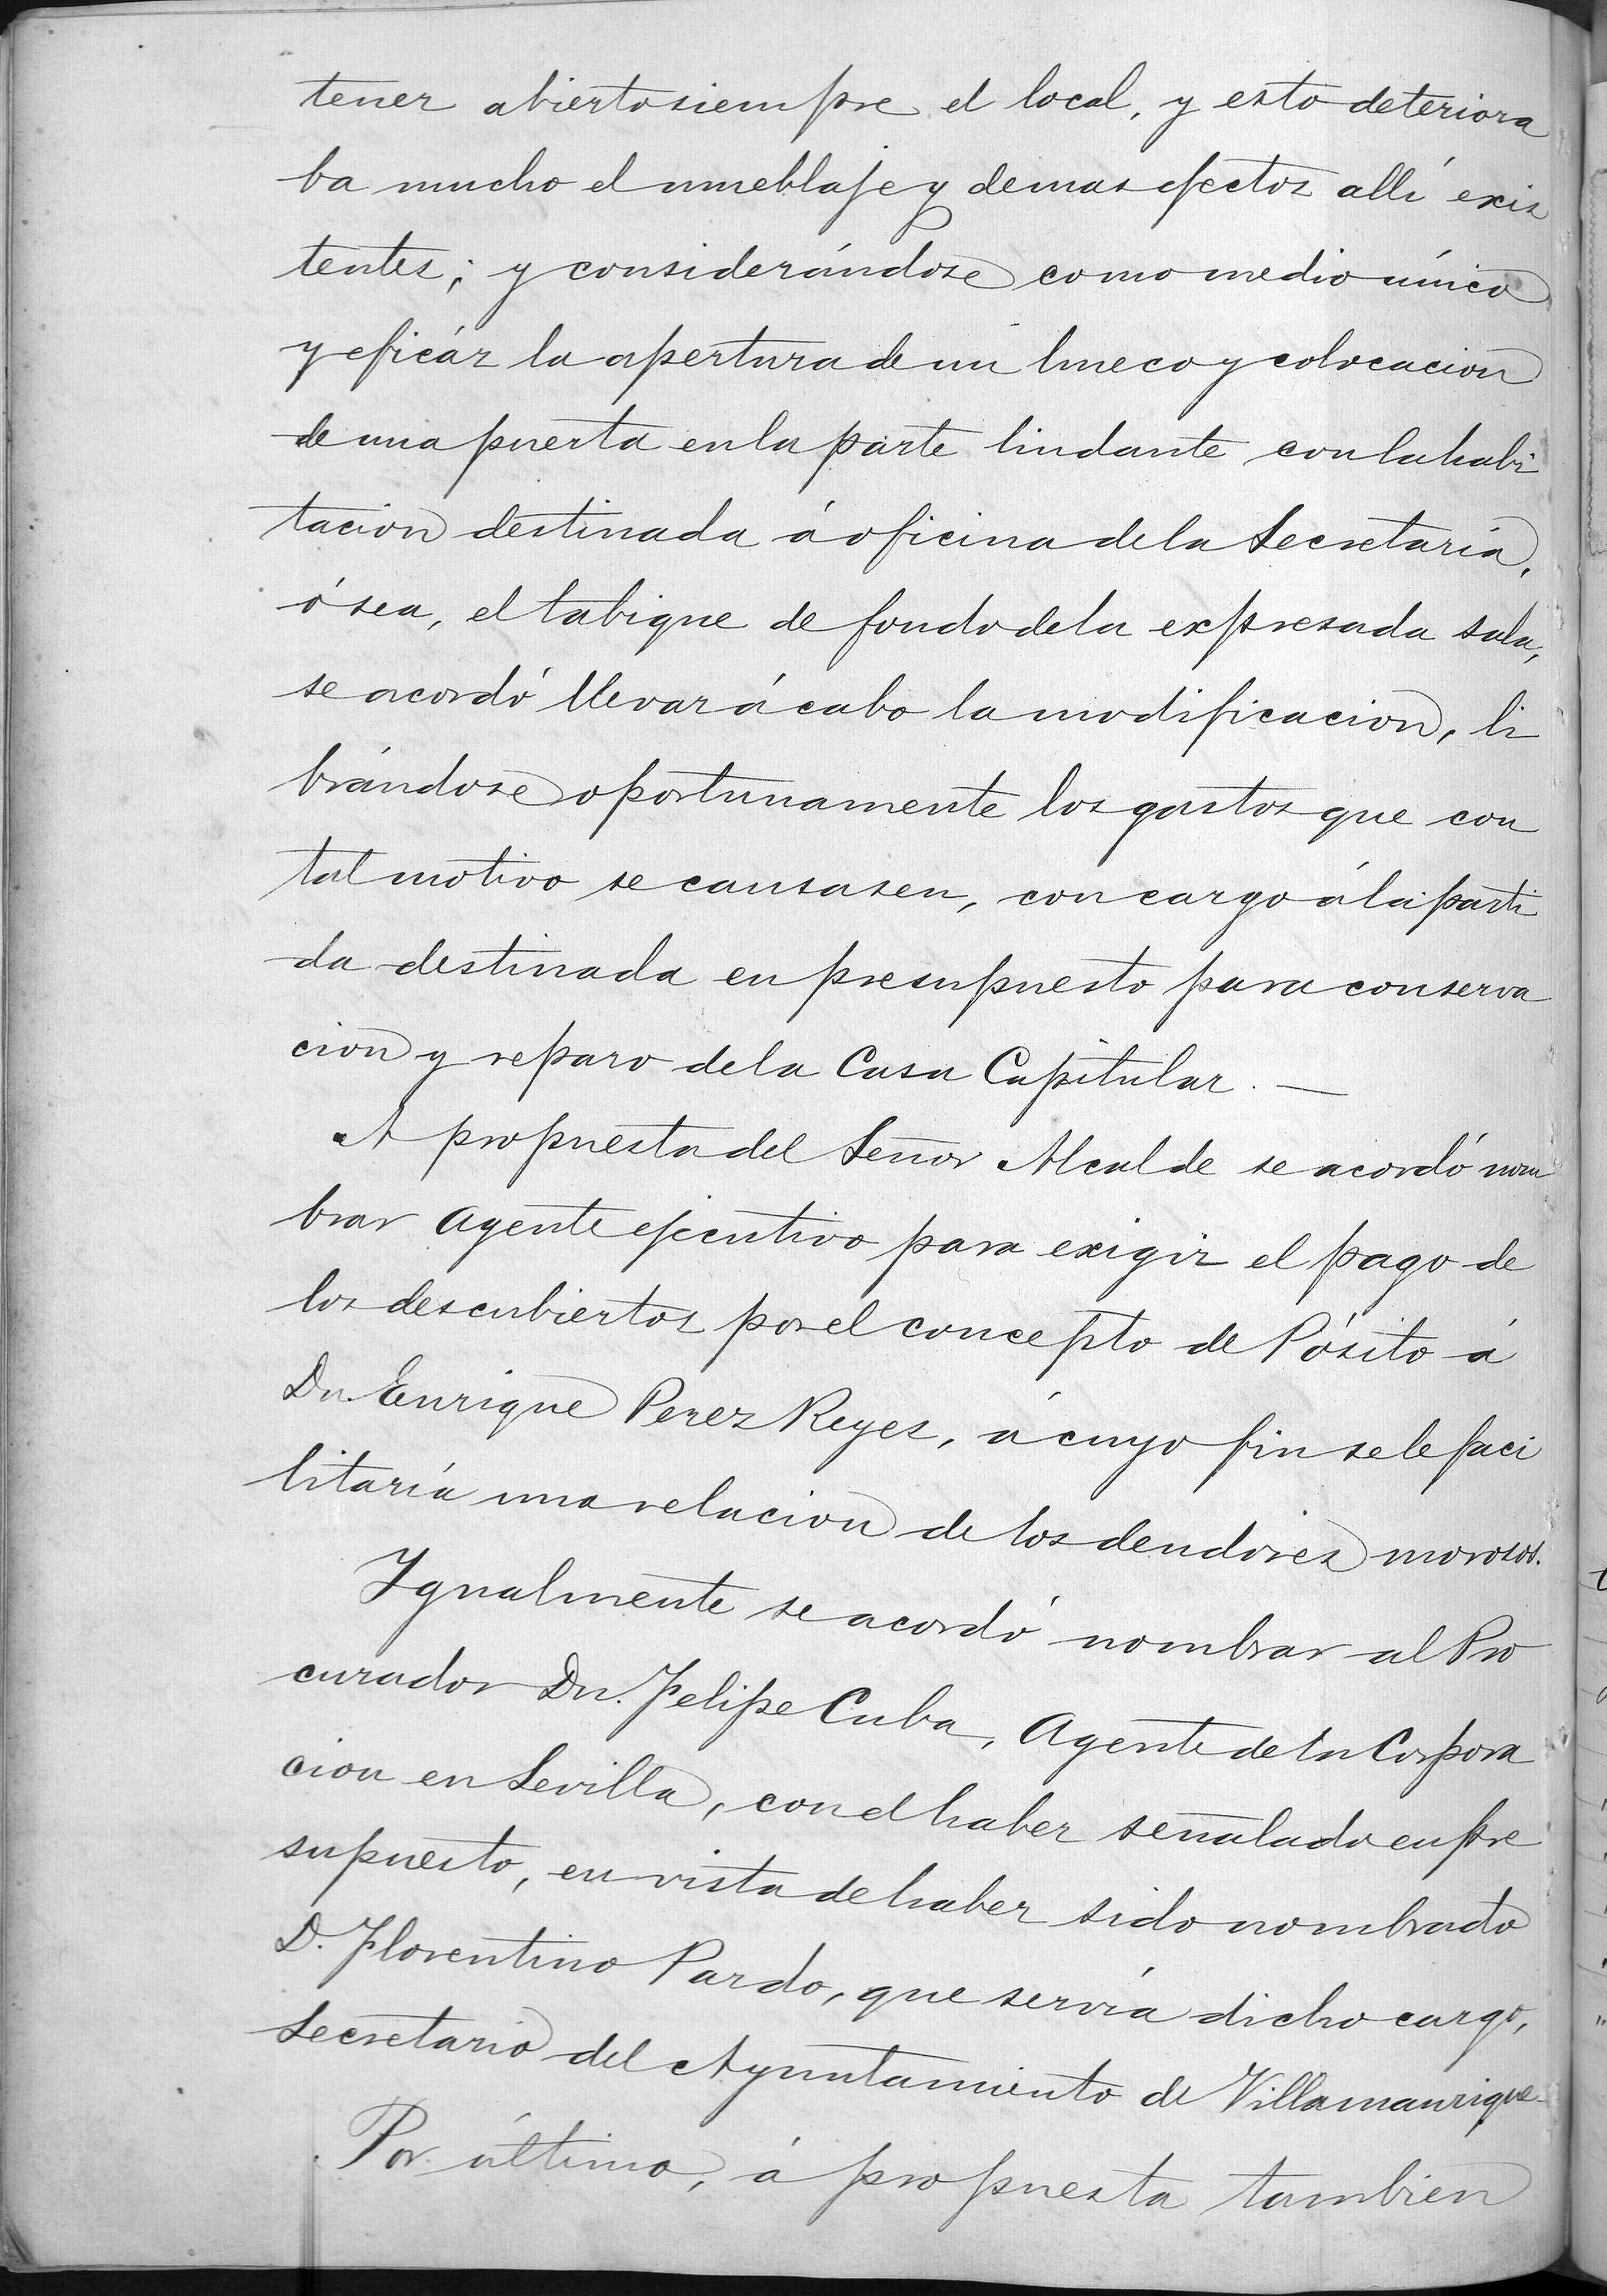 tener abierto siempre el local, y esto deteriora
ba mucho el mueblaje y demas efectos allí exis
tentes; y considerándose como medio único
y eficáz la apertura de un hueco y colocacion
de una puerta en la parte lindante con la habi
tacion destinada á oficina de la Secretaría,
ó sea, el tabique de fondo de la expresada sala,
se acordó llevar á cabo la modificacion, li
brándose oportunamente los gastos que con
tal motivo se causasen, con cargo á la parti
da destinada en presupuesto para conserva
cion y reparo de la Casa Capitular. —
A propuesta del Señor Alcalde se acordó nom
brar Agente ejecutivo para exigir el pago de
los descubiertos por el concepto de Pósito á
Dn. Enrique Perez Reyes, á cuyo fin se le faci
litaría una relacion de los deudores morosos.
Igualmente se acordó nombrar al Pro
curador Dn. Felipe Cuba, Agente de la Corpora
cion en Sevilla, con el haber señalado en pre
supuesto, en vista de haber sido nombrado
D. Florentino Pardo, que servía dicho cargo,
Secretario del Ayuntamiento de Villamanrique.
Por último, á propuesta tambien